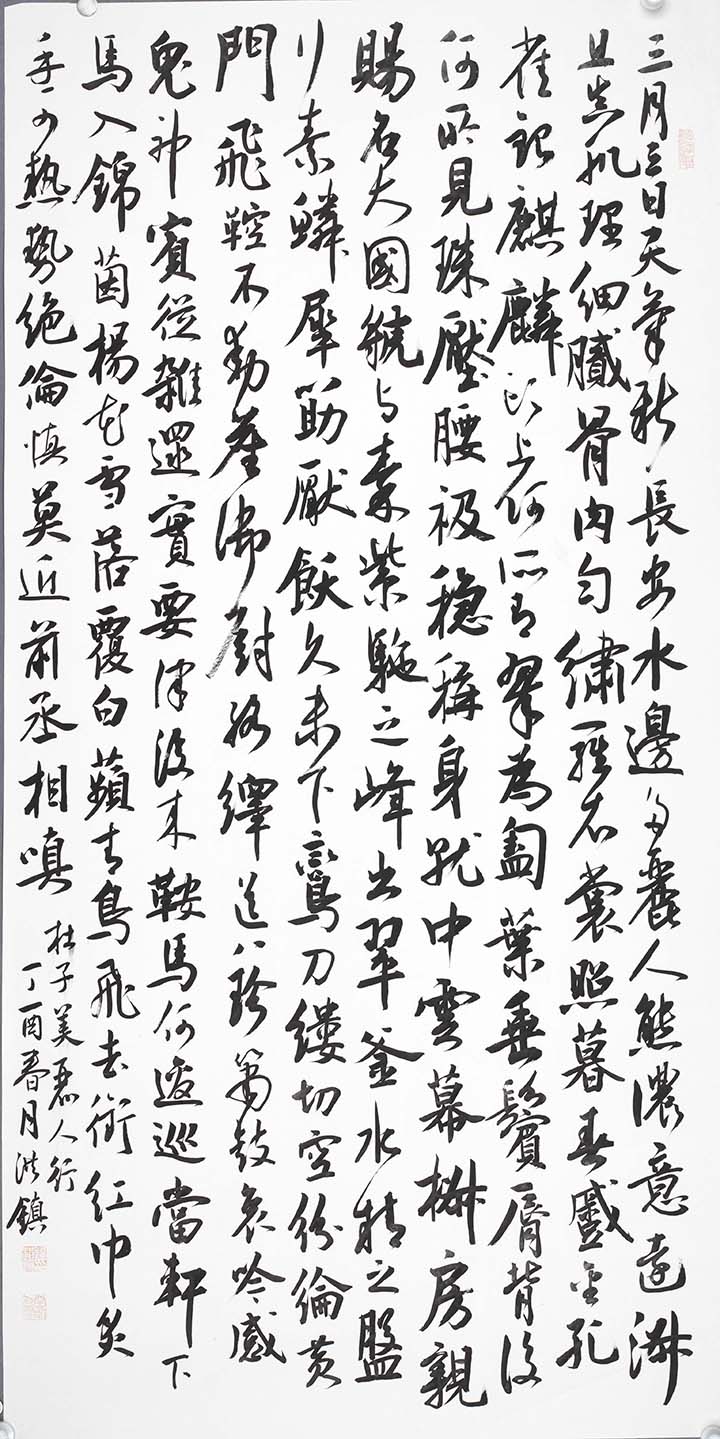 三月三日天氣新長安水邊多麗人態濃意遠淑
且真肌理細膩骨肉勻繡羅衣裳照暮春蹙金孔
雀銀麒麟頭上何所有翠為㔩葉垂鬢脣背後
何所見珠壓腰衱穩稱身就中雲幕椒房親
賜名大國虢与秦紫駞之峰出翠釜水精之盤
行素鱗犀筯厭飫久未下鸞刀縷切空紛綸黃
門飛鞚不動塵御廚絡繹送八珍簫鼓哀吟感
鬼神賓從雜遝實要津後來鞍馬何逡巡當軒下
馬入錦茵楊花雪落覆白蘋青鳥飛去銜紅巾炙
手可熱勢絕倫慎莫近前丞相嗔
杜子美麗人行
丁酉春月洪鎮